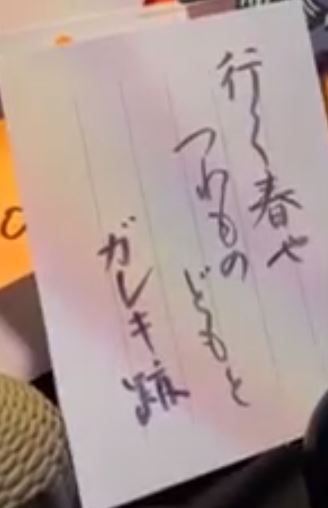 行く春や
つわもの
どもと
ガレキ跡